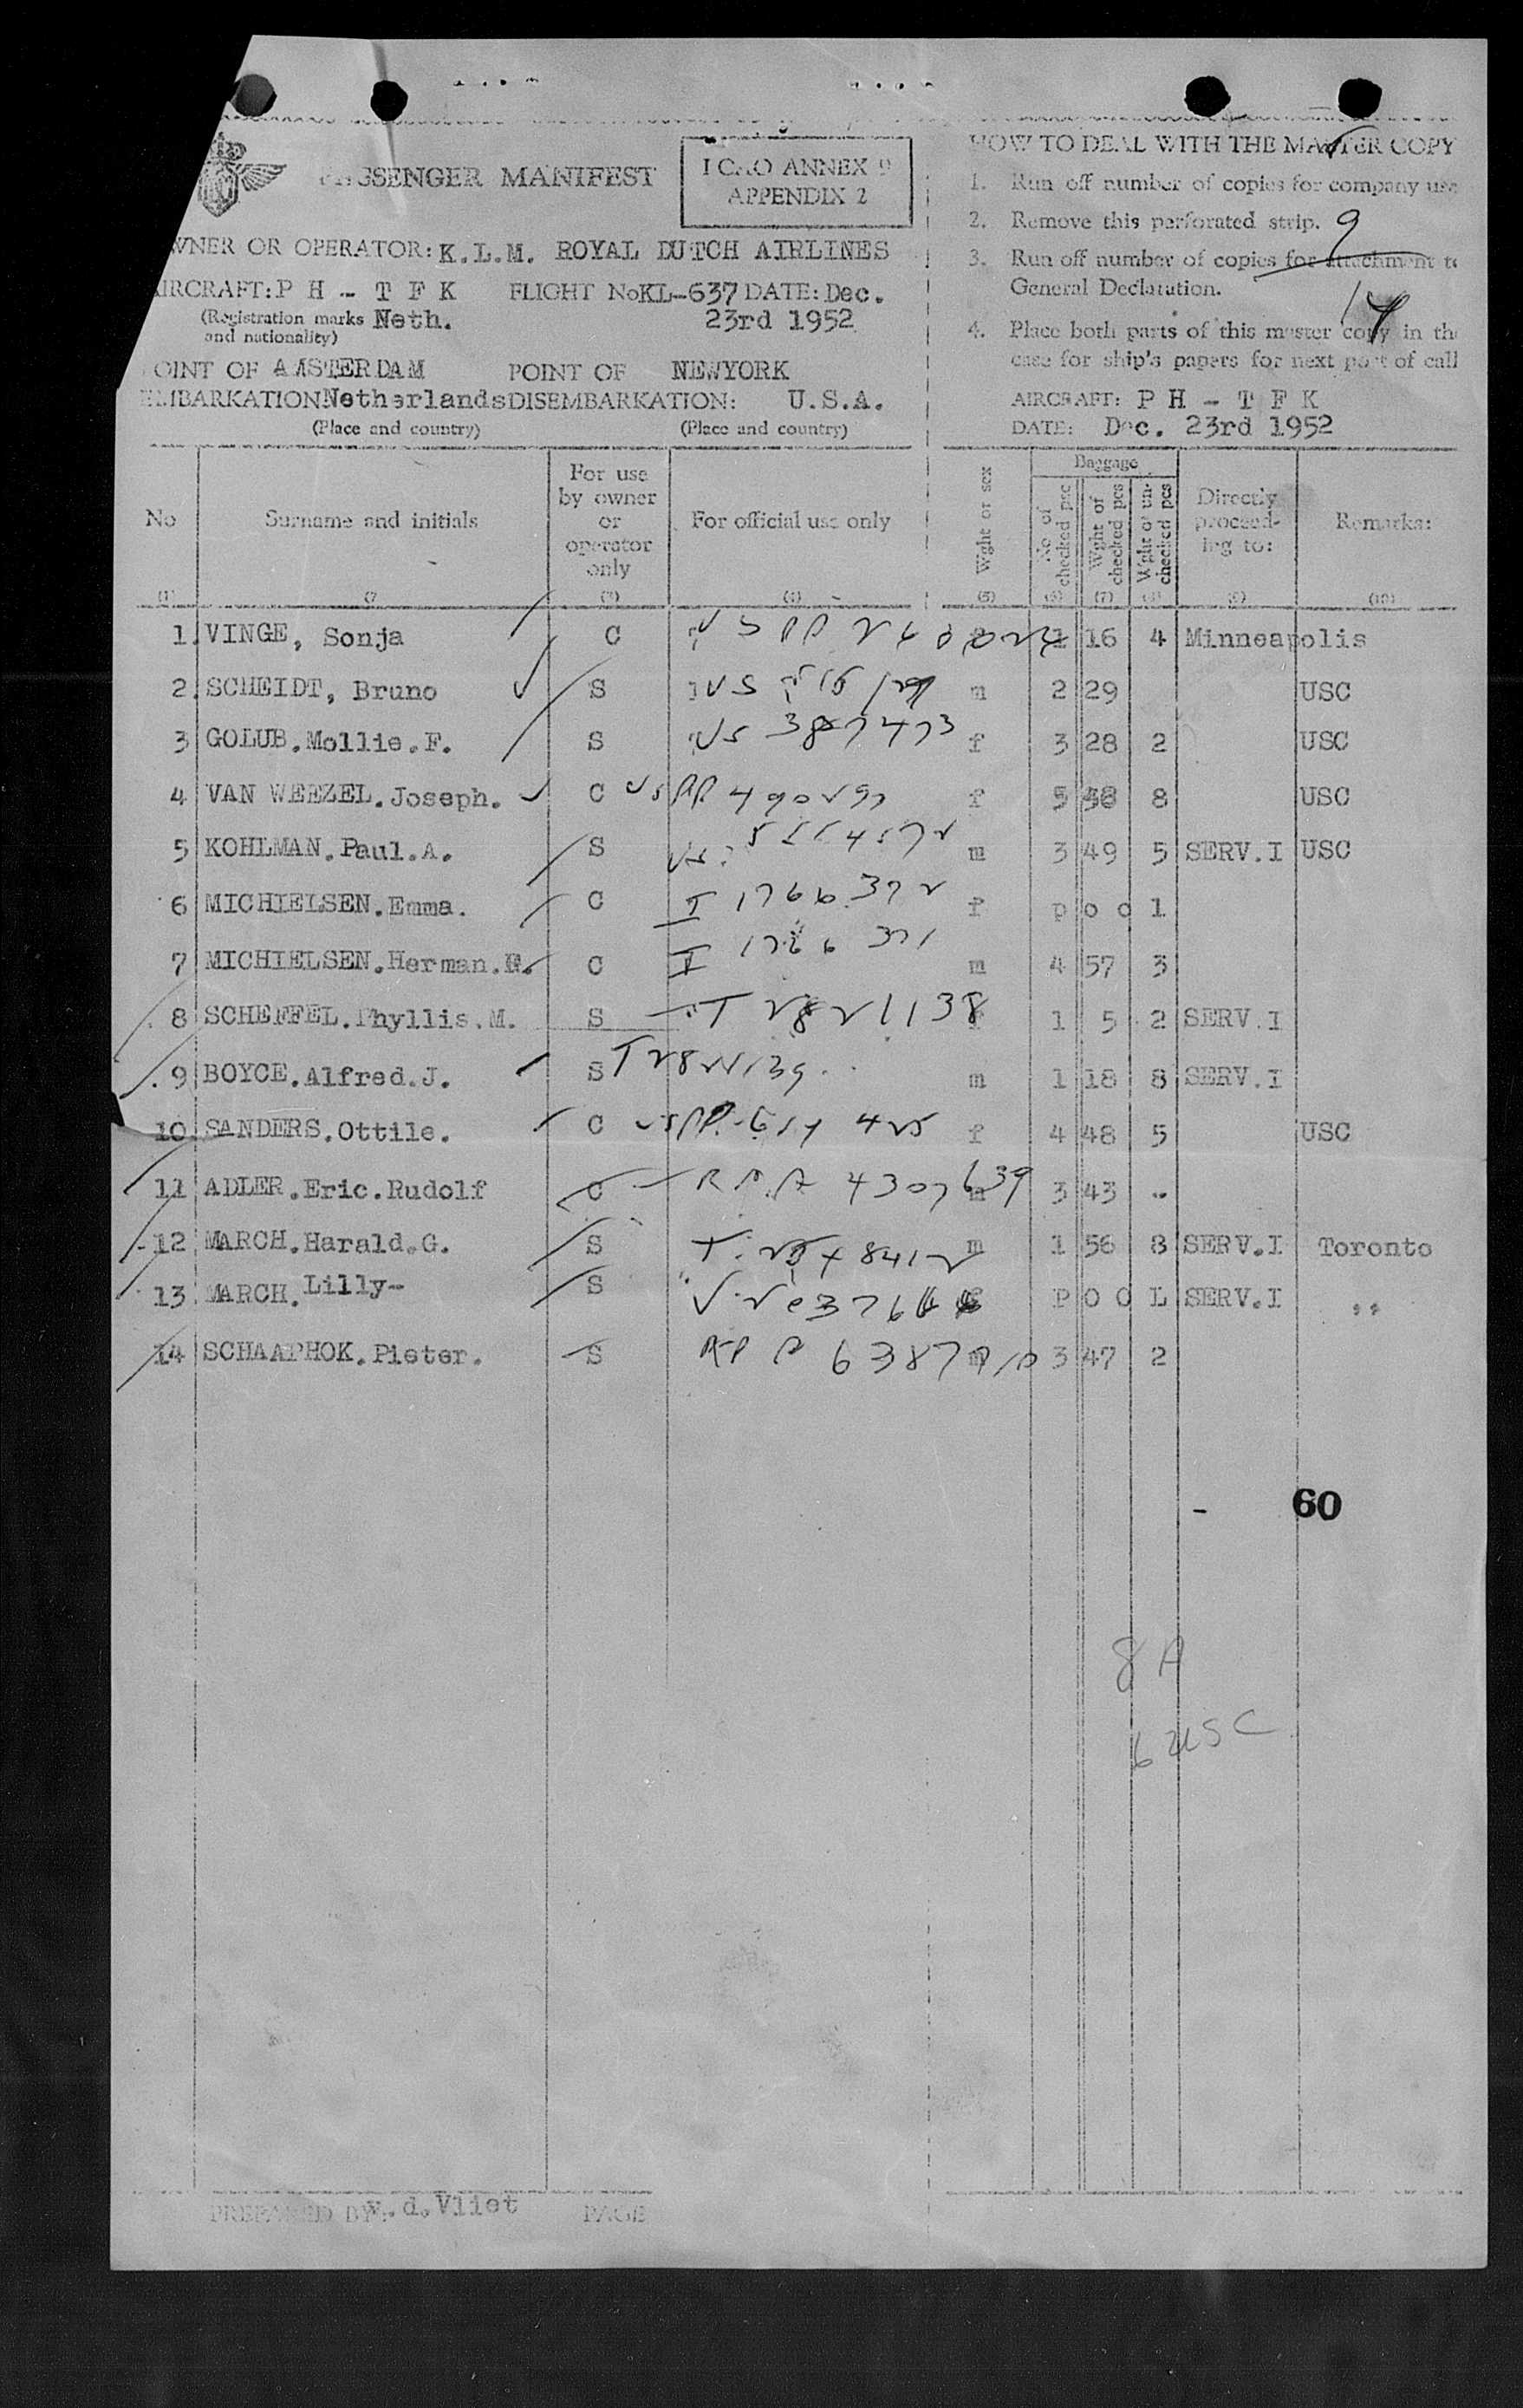 PASSENGER MANIFEST
ICAO ANNEX 9
APPENDIX 2
OWNER OR OPERATOR: K.L.M. ROYAL DUTCH AIRLINES
AIRCRAFT: P H - T F K FLIGHT No KL-637 DATE: Dec.
(Registration marks Neth. 23rd 1952
and nationality)
POINT OF AMSTERDAM POINT OF NEWYORK
EMBARKATION: Netherlands DISEMBARKATION: U.S.A.
(Place and country) (Place and country)
HOW TO DEAL WITH THE MASTER COPY
1. Run off number of copies for company use
2. Remove this perforated strip. 9
3. Run off number of copies for attachment to
General Declaration.
14
4. Place both parts of this master copy in the
case for ship's papers for next port of call
AIRCRAFT: P H - T F K
DATE: Dec. 23rd 1952
No Surname and initials For use by owner or operator only For official use only Wght or sex Baggage No of checked pcs Wght of checked pcs Wght of un-checked pcs Directly proceed-ing to: Remarks:
(1) (2) (3) (4) (5) (6) (7) (8) (9) (10)
1. VINGE, Sonja C 1 16 4 Minneapolis
2. SCHEIDT, Bruno S m 2 29 USC
3 GOLUB.Mollie.F. S US 3879473 f 3 28 2 USC
4 VAN WEEZEL.Joseph. C US PP. f 5 8 USC
5 KOHLMAN.Paul.A. S m 3 49 5 SERV.I USC
6 MICHIELSEN.Emma. C I 1766372 f p o o l
7 MICHIELSEN.Herman. C I 1766371 m 4 57 3
8 SCHEFFEL.Phyllis.M. S T 2821138 f 1 5 2 SERV.I
9 BOYCE.Alfred.J. S m 1 18 8 SERV.I
10 SANDERS.Ottile. C f 4 48 5 USC
11 ADLER.Eric.Rudolf C 4307639 m 3 43 ..
12 MARCH.Harald.G. S m 1 56 8 SERV.I Toronto
13 MARCH.Lilly- S P O O L SERV.I ,,
14 SCHAAPHOK.Pieter. S m 3 47 2
- 60
8 A
6 USC
PREPARED BY v.d.Vliet PAGE